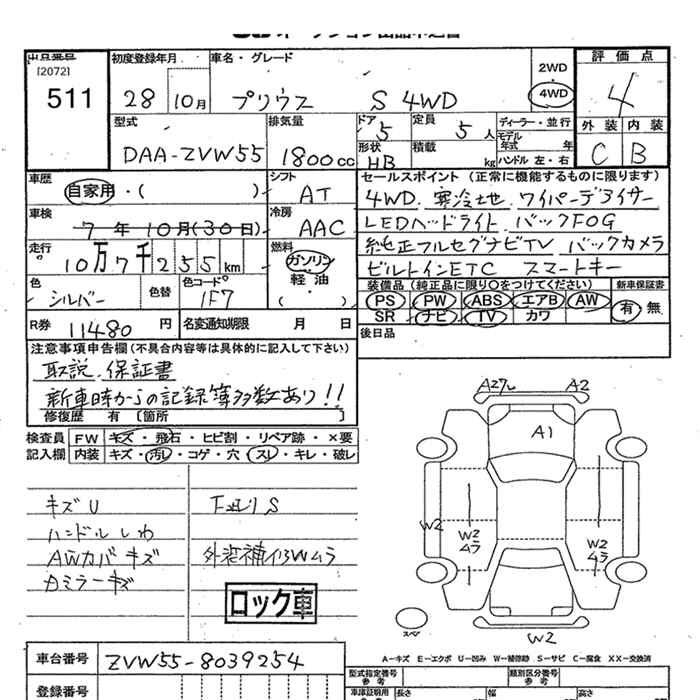 出品番号
[2072]
511
初度登録年月
28 10月
車名・グレード
プリウス S 4WD
2WD
・
4WD
評価点
4
外装 内装
C B
型式
DAA-ZVW55
排気量
1800cc
ドア 5
形状 HB
定員 5人
積載 kg
ディーラー・並行
モデル年式 年
ハンドル 左・右
車歴
自家用・( )
シフト
AT
車検
7年10月(30日)
冷房
AAC
走行
10万7千255km
燃料
ガソリン
軽油
・( )
色
シルバー
色替
色コードNo
1F7
R券 11480円
名変通知期限 月 日
セールスポイント(正常に機能するものに限ります)
4WD 寒冷地 ワイパーデアイサー
LEDヘッドライト バックFOG
純正フルセグナビTV バックカメラ
ビルトインETC スマートキー
装備品(純正品に限り○をつけてください)
PS PW ABS エアB AW
SR ナビ TV カワ
新車保証書
有 無
後日品
注意事項申告欄(不具合内容等は具体的に記入して下さい)
取説、保証書
新車時からの記録簿多数あり!!
修復歴 有 [箇所 ]
検査員記入欄
FW キズ・飛石・ヒビ割・リペア跡・×要
内装 キズ・汚レ・コゲ・穴・スレ・キレ・破レ
キズU
ハンドルしわ
AWカバキズ
カミラーキズ
下エリS
外装補修Wムラ
ロック車
A2
A1
W2
W2
ムラ
W2
ムラ
スペア
W2
A-キズ E-エクボ U-凹み W-補修跡 S-サビ C-腐食 XX-交換済
車台番号 ZVW55-8039254
登録番号
型式指定番号
参考
類別区分番号
参考
車庫証明用
長さ
幅
高さ